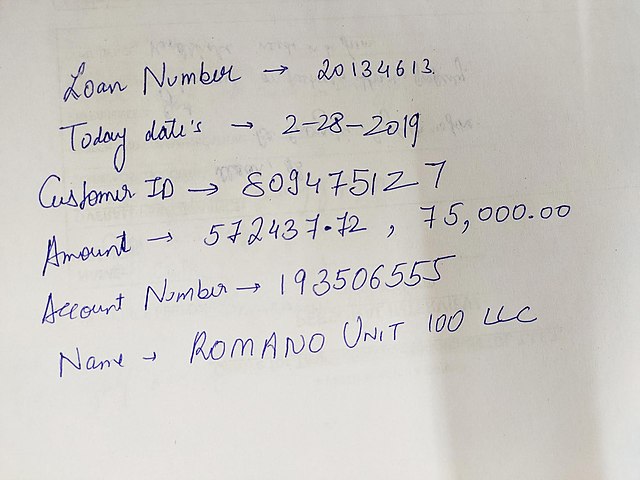 Loan Number → 20134613
Today date's → 2-28-2019
Customer ID → 8094751Z7
Amount → 572437.72, 75,000.00
Account Number → 193506555
Name → ROMANO UNIT 100 LLC